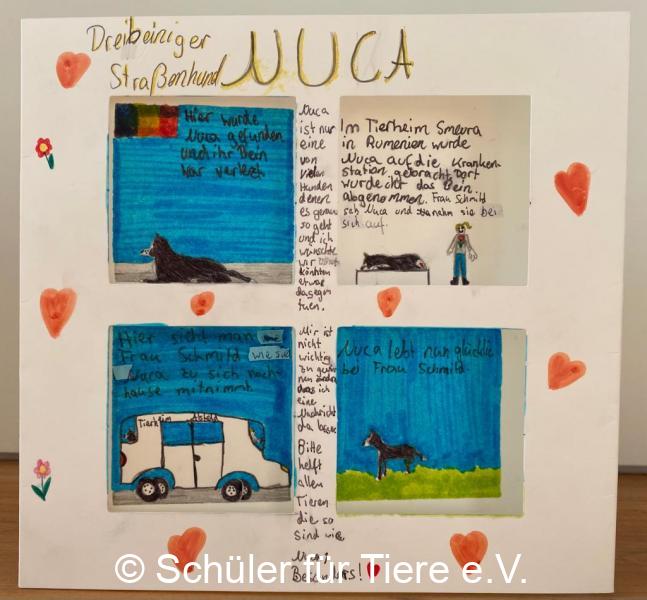 Dreibeiniger
Straßenhund NUCA
Hier wurde
Nuca gefunden
und ihr Bein
war verletzt
Im Tierheim Smeura
in Rumenien wurde
Nuca auf die Kranken-
station gebracht. Dort
wurde ihr das Bein
abgenommen. Frau Schmild
sah Nuca und nahm sie bei
sich auf.
Nuca
ist nur
eine
von
vielen
Hunden
denen
es genau
so geht
und ich
wünschte
wir
könnten
etwas
dagegen
tuen.
Hier sieht man
Frau Schmild wie sie
Nuca zu sich nach-
hause mitnimmt
Tierheim
Nuca lebt nun glücklich
bei Frau Schmild.
Mir ist
nicht
wichtig
zu gewin
nen
dass ich
eine
Nachricht
da lasse
Bitte
helft
allen
Tieren
die so
sind wie
Nuca
Besonders!
© Schüler für Tiere e.V.